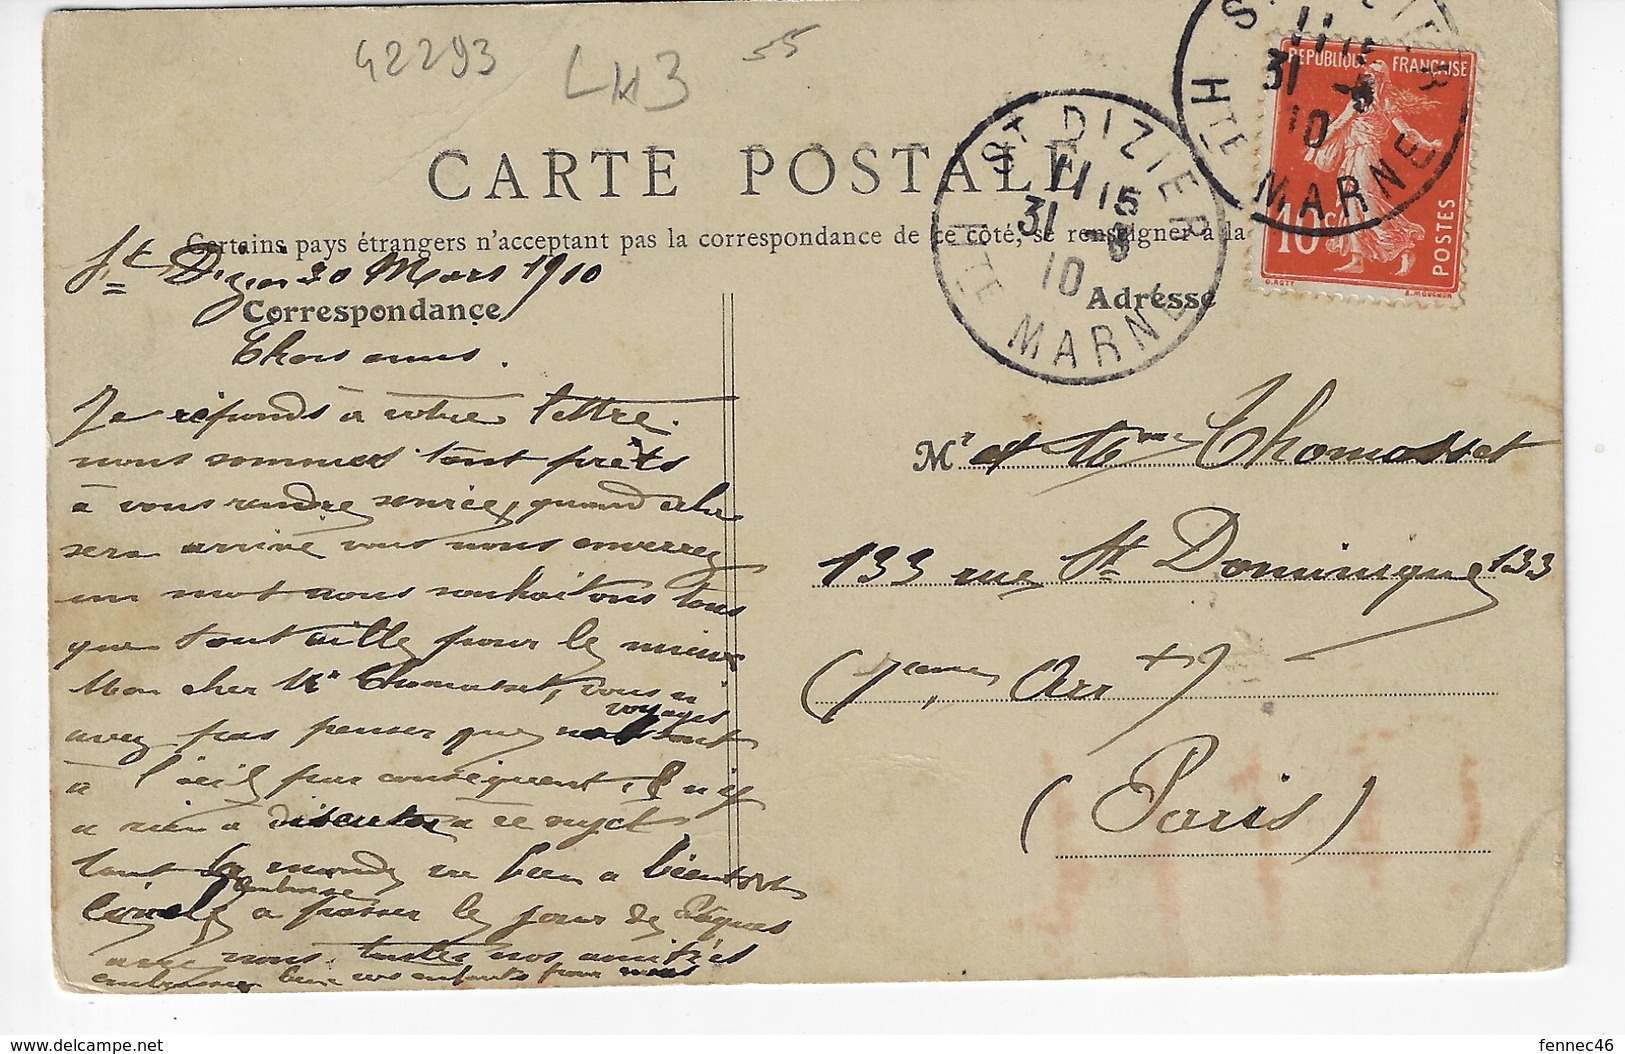 42293
LH3
55
ST DIZIER
11 15
31 -3
10
HTE MARNE
ST DIZIER
11 15
31 -3
10
HTE MARNE
REPUBLIQUE FRANÇAISE
10c
POSTES
O. ROTY
E. MOUCHON
CARTE POSTALE
Certains pays étrangers n'acceptent pas la correspondance de ce côté, se renseigner à la
St Dizier 30 Mars 1910
Correspondance
Adresse
Chers amis.
Je réponds à votre lettre.
nous sommes tout prêts
à vous rendre service, quand cela
sera arrivé vous nous enverrez
un mot nous souhaitons tous
que tout aille pour le mieux
Mon cher Mr Thomasset, vous n'
avez pas penser que voyages sont
à l'œil par conséquent, il n'y
a rien a discuter a ce sujet
tout le monde va bien a bientôt
a passer le jour de Pâques
avec nous. toutes nos amitiés
embrassez bien vos enfants pour nous
Mr et Mme Thomasset
133 rue St Dominique 133
(7eme Arrt)
(Paris)
fennec46
https://www.delcampe.net